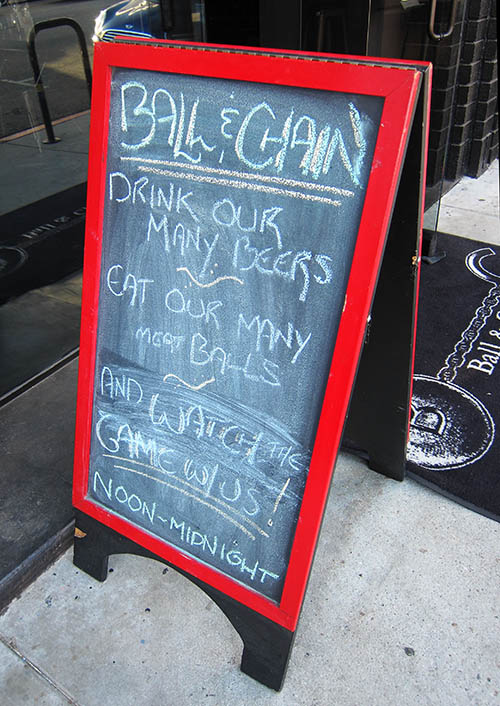 BALL & CHAIN
DRINK OUR
MANY BEERS
EAT OUR MANY
MEAT BALLS
AND WATCH THE
GAME W/US!
NOON-MIDNIGHT
Ball &
B